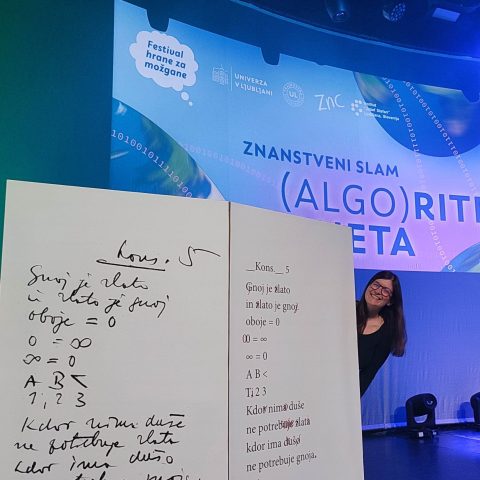 Festival
hrane za
možgane
UNIVERZA
V LJUBLJANI
UL
ZnC
Institut
"Jožef Stefan"
Ljubljana, Slovenija
101001011110100
ZNANSTVENI SLAM
(ALGO)RIT
ETA
Kons. 5
Gnoj je zlato
in zlato je gnoj
oboje = 0
0 = ∞
∞ = 0
A B <
1, 2 3
Kdor nima duše
ne potrebuje zlata
kdor ima dušo
__Kons.__ 5
Gnoj je zlato
in zlato je gnoj.
oboje = 0
0 = ∞
∞ = 0
A B <
T; 2 3
Kdor nima duše
ne potrebuje zlata
kdor ima dušo
ne potrebuje gnoja.